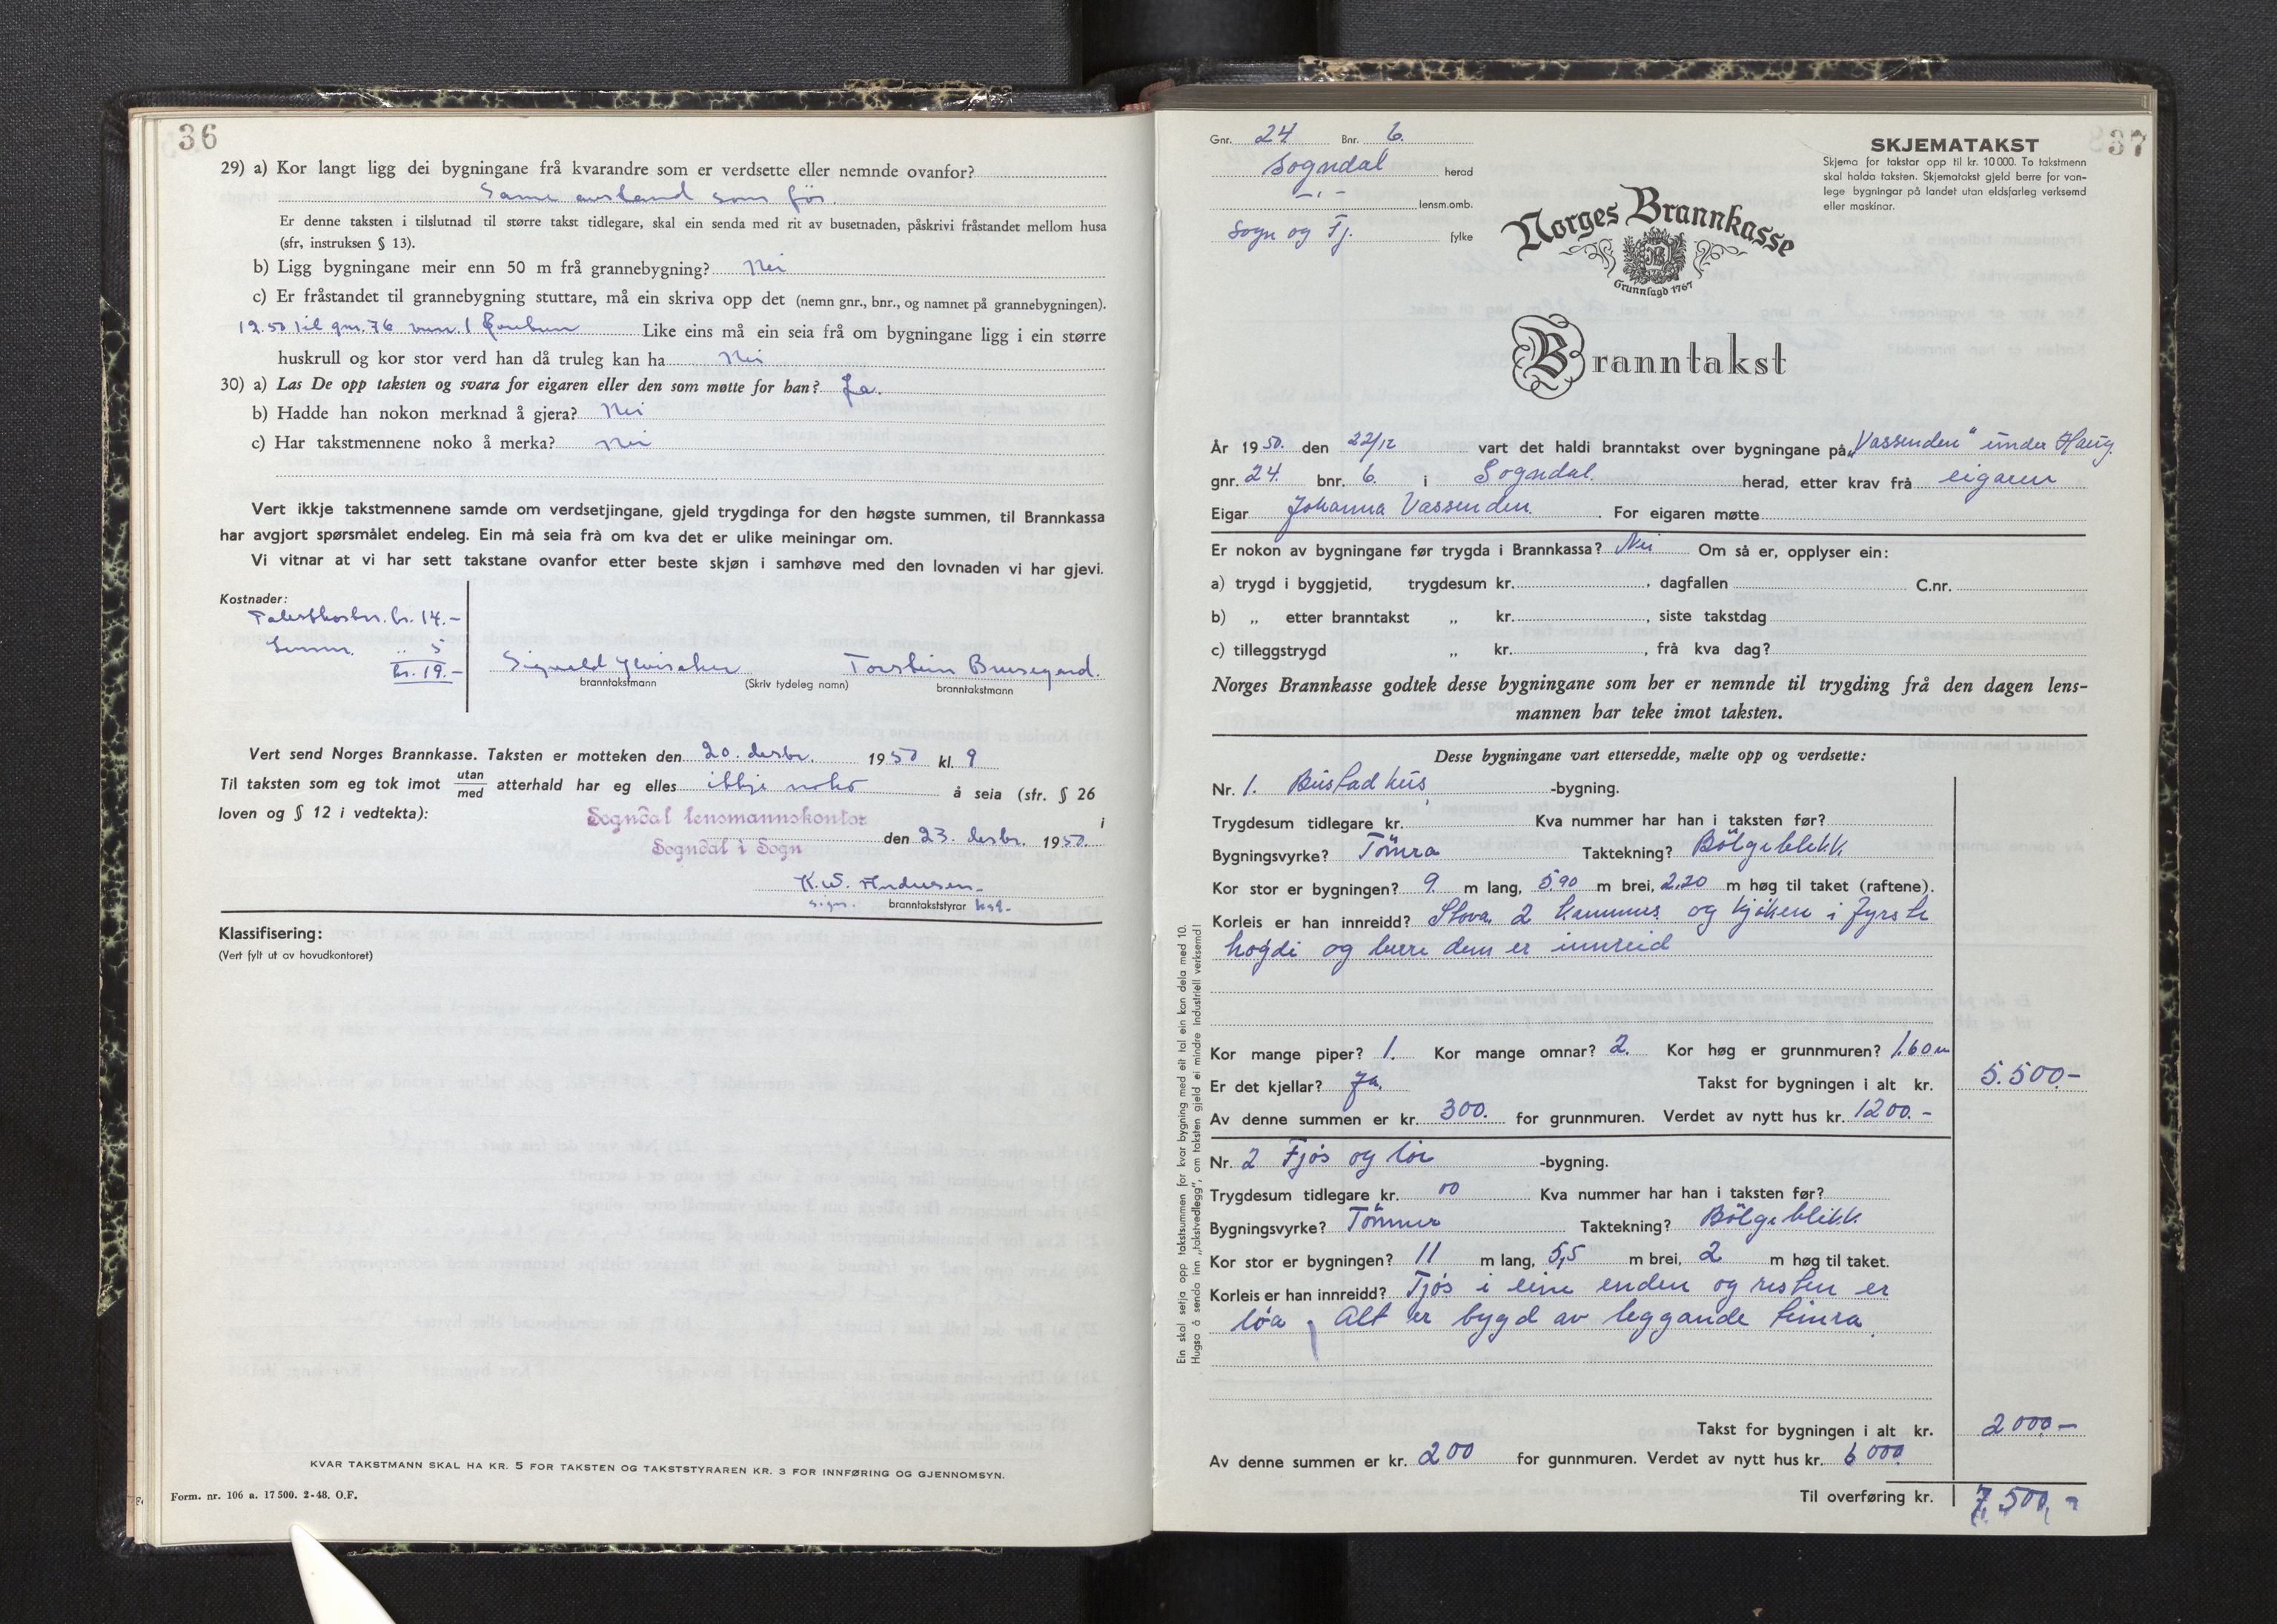 36
29) a) Kor langt ligg dei bygningane frå kvarandre som er verdsette eller nemnde ovanfor?
Same avstand som før.
Er denne taksten i tilslutnad til større takst tidlegare, skal ein senda med rit av busetnaden, påskrivi fråstandet mellom husa
(sfr, instruksen § 13).
b) Ligg bygningane meir enn 50 m frå grannebygning? Nei
c) Er fråstandet til grannebygning stuttare, må ein skriva opp det (nemn gnr., bnr., og namnet på grannebygningen).
12.50 til gnr. 76 bnr. 1 Like eins må ein seia frå om bygningane ligg i ein større
huskrull og kor stor verd han då truleg kan ha Nei
30) a) Las De opp taksten og svara for eigaren eller den som møtte for han? Ja.
b) Hadde han nokon merknad å gjera? Nei
c) Har takstmennene noko å merka? Nei
Vert ikkje takstmennene samde om verdsetjingane, gjeld trygdinga for den høgste summen, til Brannkassa
har avgjort spørsmålet endeleg. Ein må seia frå om kva det er ulike meiningar om.
Vi vitnar at vi har sett takstane ovanfor etter beste skjøn i samhøve med den lovnaden vi har gjevi.
Kostnader:
kr. 14.-
" 5
kr. 19.-
Sigvald Torstein Brusegard.
branntakstmann (Skriv tydeleg namn) branntakstmann
Vert send Norges Brannkasse. Taksten er motteken den 20. desbr. 1950 kl. 9
Til taksten som eg tok imot utan/med atterhald har eg elles ikkje noko å seia (sfr. § 26
loven og § 12 i vedtekta):
Sogndal lensmannskontor i
Sogndal i Sogn den 23. desbr. 1950.
K.W. Andersen.
sign. branntakststyrar kst.
Klassifisering:
(Vert fylt ut av hovudkontoret)
KVAR TAKSTMANN SKAL HA KR. 5 FOR TAKSTEN OG TAKSTSTYRAREN KR. 3 FOR INNFØRING OG GJENNOMSYN.
Form. nr. 106 a. 17 500. 2-48. O.F.
37
Gnr. 24 Bnr. 6.
Sogndal herad
-"- lensm.omb.
Sogn og Fj. fylke
SKJEMATAKST
Skjema for takstar opp til kr. 10 000. To takstmenn
skal halda taksten. Skjematakst gjeld berre for van-
lege bygningar på landet utan eldsfarleg verksemd
eller maskinar.
Norges Brannkasse
Grunnlagd 1767
Branntakst
År 1950. den 22/12 vart det haldi branntakst over bygningane på „Vassenden" under Haug.
gnr. 24. bnr. 6. i Sogndal. herad, etter krav frå eigaren
Eigar Johanna Vassenden. For eigaren møtte
Er nokon av bygningane før trygda i Brannkassa? Nei Om så er, opplyser ein:
a) trygd i byggjetid, trygdesum kr. , dagfallen C.nr.
b) „ etter branntakst „ kr. , siste takstdag
c) tilleggstrygd „ kr. , frå kva dag?
Norges Brannkasse godtek desse bygningane som her er nemnde til trygding frå den dagen lens-
mannen har teke imot taksten.
Desse bygningane vart ettersedde, mælte opp og verdsette:
Nr. 1. Bustadhus -bygning.
Trygdesum tidlegare kr. Kva nummer har han i taksten før?
Bygningsvyrke? Tömra Taktekning? Bölgeblikk
Kor stor er bygningen? 9 m lang, 5.90 m brei, 2,20 m høg til taket (raftene).
Korleis er han innreidd? Stova 2 kammers og kjöken i fyrste
høgdi og berre dem er innreid
Kor mange piper? 1. Kor mange omnar? 2. Kor høg er grunnmuren? 1.60 m
Er det kjellar? Ja. Takst for bygningen i alt kr. 5.500.-
Av denne summen er kr. 300. for grunnmuren. Verdet av nytt hus kr. 1200.-
Nr. 2 Fjøs og löe -bygning.
Trygdesum tidlegare kr. 00 Kva nummer har han i taksten før?
Bygningsvyrke? Tömmer Taktekning? Bölgeblikk
Kor stor er bygningen? 11 m lang, 5,5 m brei, 2 m høg til taket.
Korleis er han innreidd? Fjøs i eine enden og resten er
løa, Alt er bygd av leggande timra.
Takst for bygningen i alt kr. 2000.-
Av denne summen er kr. 200 for gunnmuren. Verdet av nytt hus kr. 6000
Til overføring kr. 7.500,-
Ein skal setja opp takstsummen for kvar bygning med eit tal ein kan dela med 10.
Hugsa å senda inn „takstvedlegg", om taksten gjeld ei mindre industriell verksemd!